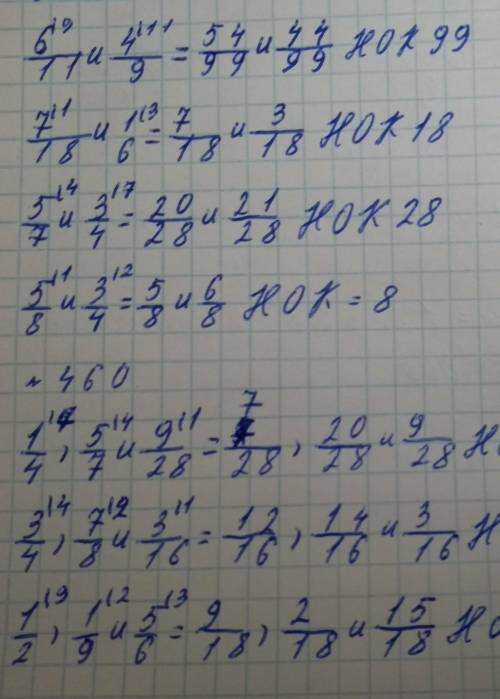 6/11 \9 и 4/9 \11 = 54/99 и 44/99 НОК 99
7/18 \1 и 1/6 \3 = 7/18 и 3/18 НОК 18
5/7 \4 и 3/4 \7 = 20/28 и 21/28 НОК 28
5/8 \1 и 3/4 \2 = 5/8 и 6/8 НОК = 8
~ 460
1/4 \7, 5/7 \4 и 9/28 \1 = 7/28, 20/28 и 9/28 НО
3/4 \4, 7/8 \2 и 3/16 \1 = 12/16, 14/16 и 3/16 Н
1/2 \9, 1/9 \2 и 5/6 \3 = 9/18, 2/18 и 15/18 НО